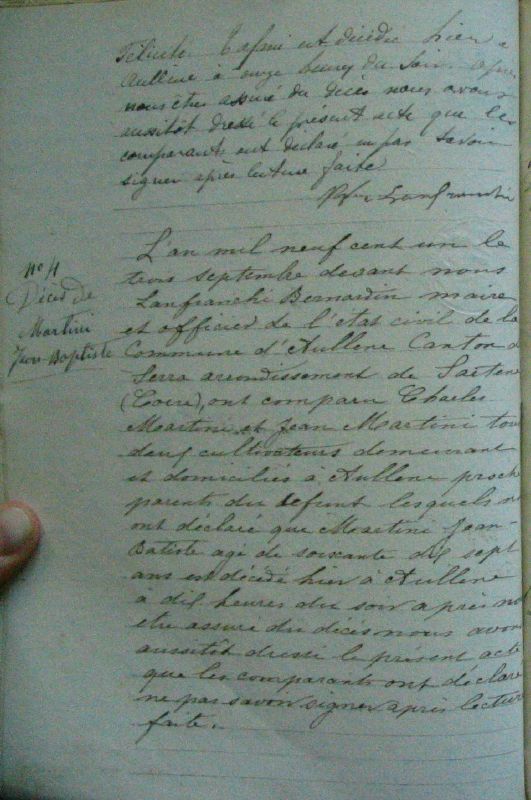 Félicité Tafani est décédée hier à
Aullene à onze heures du soir après
nous être assuré du décès nous avons
aussitôt dressé le présent acte que les
comparants ont déclaré ne pas savoir
signer après lecture faite
Lanfranchi
L'an mil neuf cent un le
trois septembre devant nous
Lanfranchi Bernardin maire
et officier de l'état civil de la
Commune d'Aullene Canton de
Serra arrondissement de Sartene
(Corse), ont comparu Charles
Martini et Jean Martini tous
deux cultivateurs demeurant
et domiciliés à Aullene proch
parents du defunt lesquels n
ont déclaré que Martini Jean-
Batiste agé de soixante dix sept
ans est décédé hier à Aullene
à dix heures du soir après no
être assuré du décès nous avon
aussitôt dressé le présent acte
que les comparants ont déclaré
ne pas savoir signer après lecture
faite.
N° 4
Décès de
Martini
Jean-Baptiste